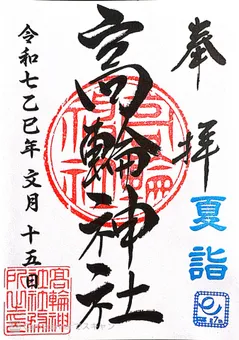 奉拝
夏詣
高輪神社
令和七乙巳年 文月 十五日
高輪神社